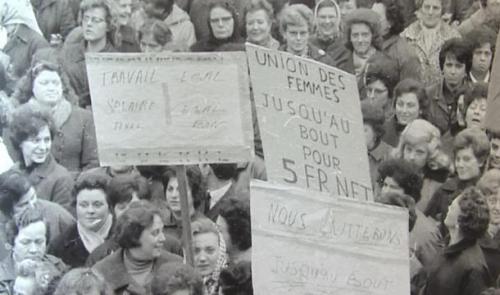 TRAVAIL EGAL
SALAIRE EGAL
UNION DES
FEMMES
JUSQU'AU
BOUT
POUR
5 FR NET
NOUS LUTTERONS
JUSQU'AU BOUT